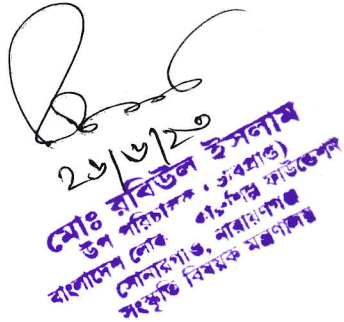 ২৬/৬/২৩
মোঃ রবিউল ইসলাম
উপ পরিচালক (ভাবপ্রাপ্ত)
বাংলাদেশ লোক ও কারুশিল্প ফাউন্ডেশন
সোনারগাঁও, নারায়ণগঞ্জ
সংস্কৃতি বিষয়ক মন্ত্রণালয়